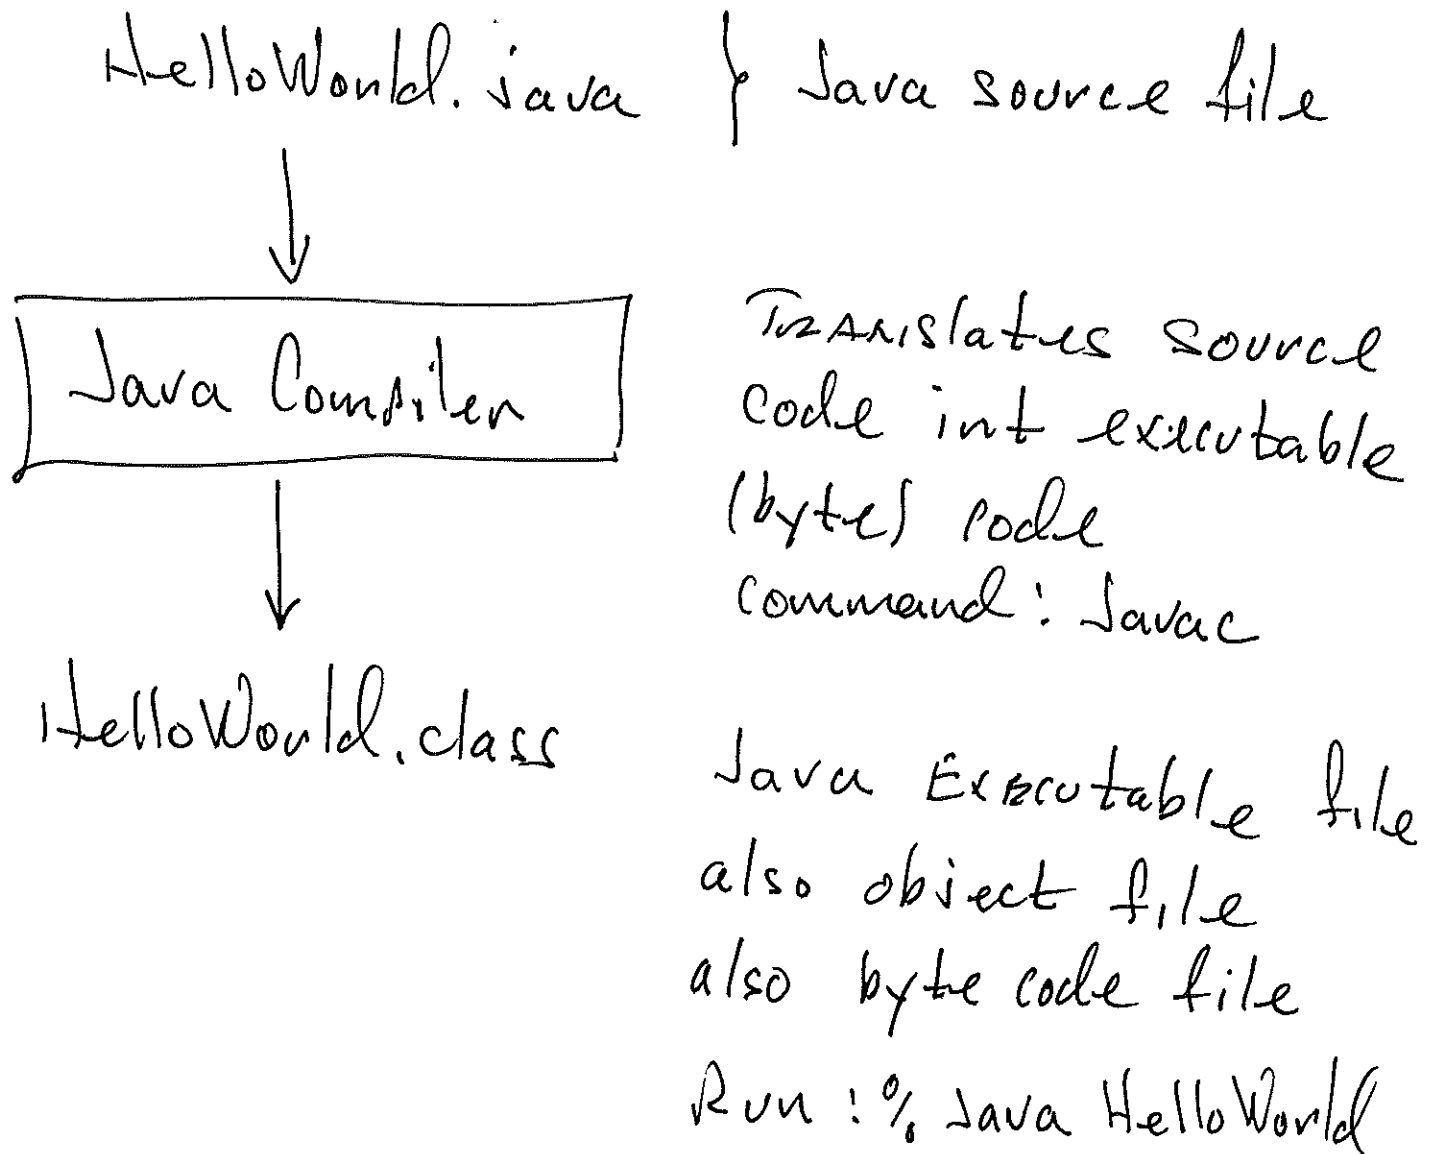 HelloWorld.java } Java source file
Java Compiler
Translates source
code int executable
(byte) code
command: Javac
HelloWorld.class
Java Executable file
also object file
also byte code file
Run : % Java HelloWorld